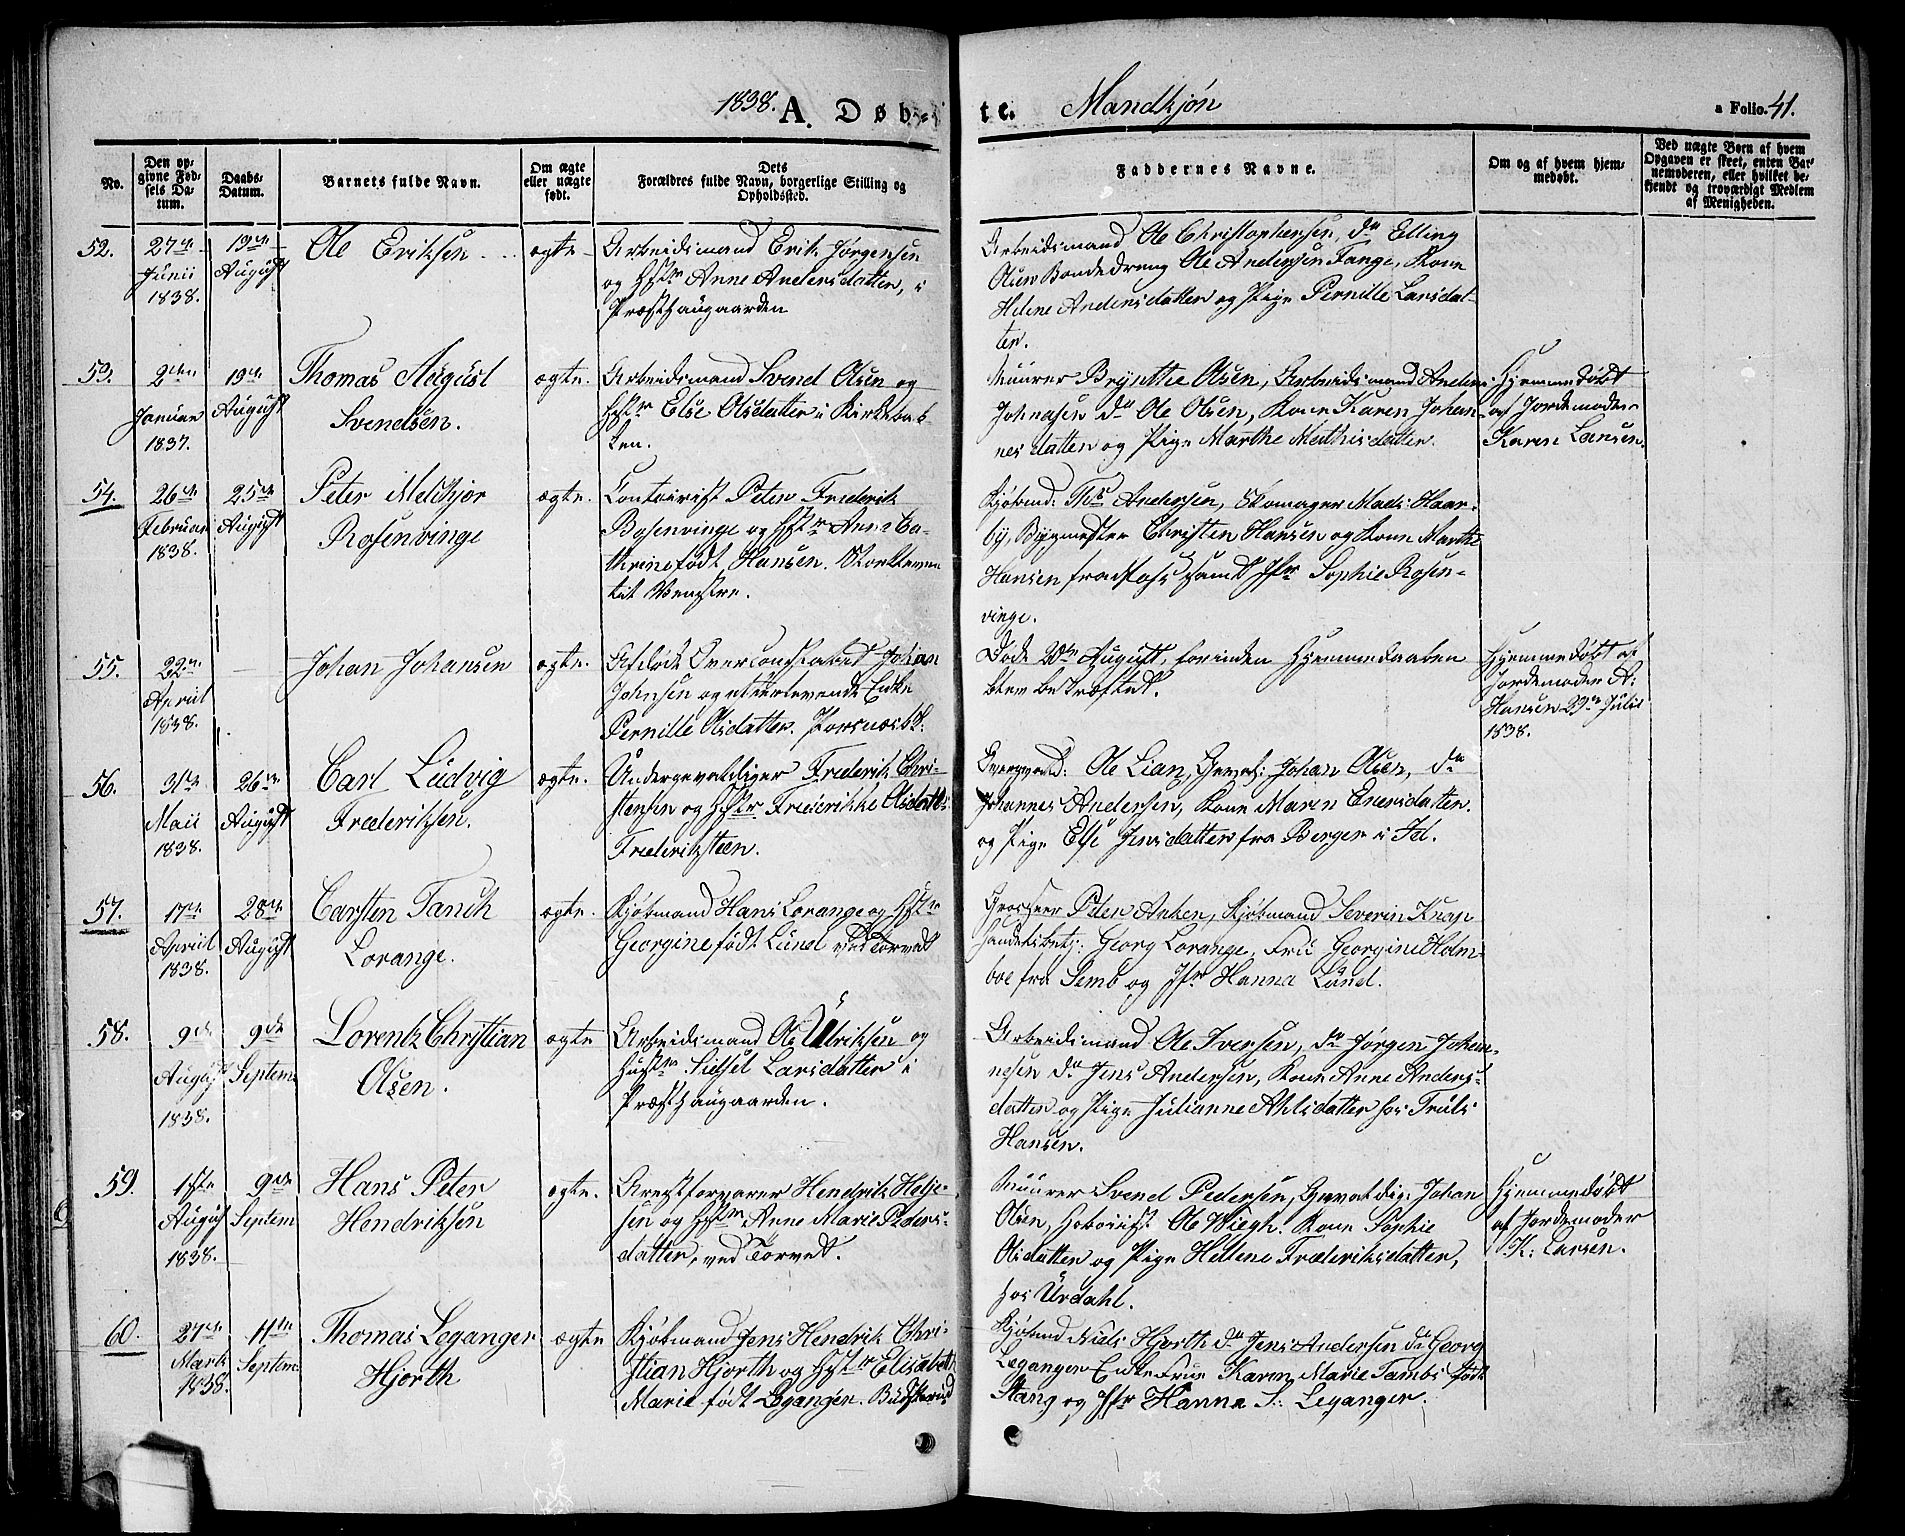 1838. A. Døb-
te. Mandkjøn
a Folio. 41.
No.
Den op-
givne Fød-
sels Da-
tum.
Daabs-
Datum.
Barnets fulde Navn.
Om ægte
eller uægte
født.
Dets
Forældres fulde Navn, borgerlige Stilling og
Opholdssted.
Faddernes Navne.
Om og af hvem hjem-
medøbt.
Ved uægte Børn af hvem
Opgaven er skeet, enten Bar-
nemoderen, eller hvilket be-
kjendt og troværdigt Medlem
af Menigheden.
52.
27de
Junii
1838.
19de
August
Ole Eriksen
ægte
Arbeidsmand Erik Jørgensen
og Hstr Anne Andersdatter, i
Præsthaugaarden
Arbeidsmand Ole Christophersen, do Elling
Olsen Bondedreng Ole Andersen Tange, Kone
Helene Andersdatter og Pige Pernille Larsdat-
ter.
53.
2den
Januar
1837.
19de
August
Thomas August
Svendsen.
ægte.
Arbeidsmand Svend Olsen og
Hstr Else Olsdatter i Kirkebak-
ken.
Muurer Brynthe Olsen, Arbeidsmand Anders
Johnsen do Ole Olsen, Kone Karen Johan-
nesdatter og Pige Marthe Mathisdatter.
Hjemmedøbt
af Jordemoder
Karen Larsen.
54.
26de
Februar
1838.
25de
August
Peter Melchjor
Rosenvinge
ægte.
Contoirist Peter Frederik
Rosenvinge og Hstr Anne Ca-
thrine født Hansen.
til Venstre.
Kjøbmd: Ths Andersen, Skomager Mads Haar-
by, Bygmester Christen Hansen og Kone Marthe
Hansen samt Jfr Sophie Rosen-
vinge.
55.
22de
April
1838.
Johan Johansen
ægte.
Afdøde Overconstabel Johan
Johnsen og efterlevende Enke
Pernille Olsdatter.
Døde August, forinden Hjemmedaaben
blev bekræftet.
Hjemmedøbt af
Jordemoder A:
Hansen 29de Julii
1838.
56.
31te
Maii
1838.
26de
August
Carl Ludvig
Frederiksen.
ægte.
Undergevaldiger Frederik Chri-
stensen og Hstr Frederikke Olsdatt:
Frederiksteen.
Ole Lian, Gevald: Johan Olsen, do
Johannes Andersen, Kone Maren Enersdatter.
og Pige Else Jensdatter fra Berger i Id.
57.
17de
April
1838.
28de
August
Carsten Tank
Lorange.
ægte.
Kjøbmand Hans Lorange og Hstr
Georgine født Lund ved Torvet
Grosserer Peter Anker, Kjøbmand Severin Knap
Handelsbetj: Georg Lorange, Frue Georgine Holm-
boe fra Semb og Jfr Hanna Lund.
58.
9de
August
1838.
9de
Septemb
Lorentz Christian
Olsen.
ægte
Arbeidsmand Ole Ulriksen og
Hustr Sidsel Larsdatter i
Præsthaugaarden.
Arbeidsmand Ole Iversen, do Jørgen Johan-
nesen do Jens Andersen, Kone Anne Anders-
datter og Pige Julianne Ahlsdatter hos Truls
Hansen.
59.
1ste
August
1838.
9de
Septem
Hans Peter
Hendriksen
ægte.
Arrestforvarer Hendrik Helje-
sen og Hstr Anne Marie Peders-
datter, ved Torvet.
Muurer Svend Pedersen, Gevaldig: Johan
Olsen, Hoboist Ole Wiegh. Kone Sophie
Olsdatter og Pige Hellene Frederiksdatter,
hos Urdahl.
Hjemmedøbt
af Jordemoder
K: Larsen.
60.
27de
Marts
1838.
11te
Septem
Thomas Leganger
Hjorth
ægte
Kjøbmand Jens Hendrik Chri-
stian Hjorth og Hstr Elisabeth
Marie født Leganger.
Kjøbmd Niels Hjorth do Jens Andersen do Georg
Leganger Enkefrue Karen Marie Tambs født
Stang og Jfr Hanna S: Leganger.